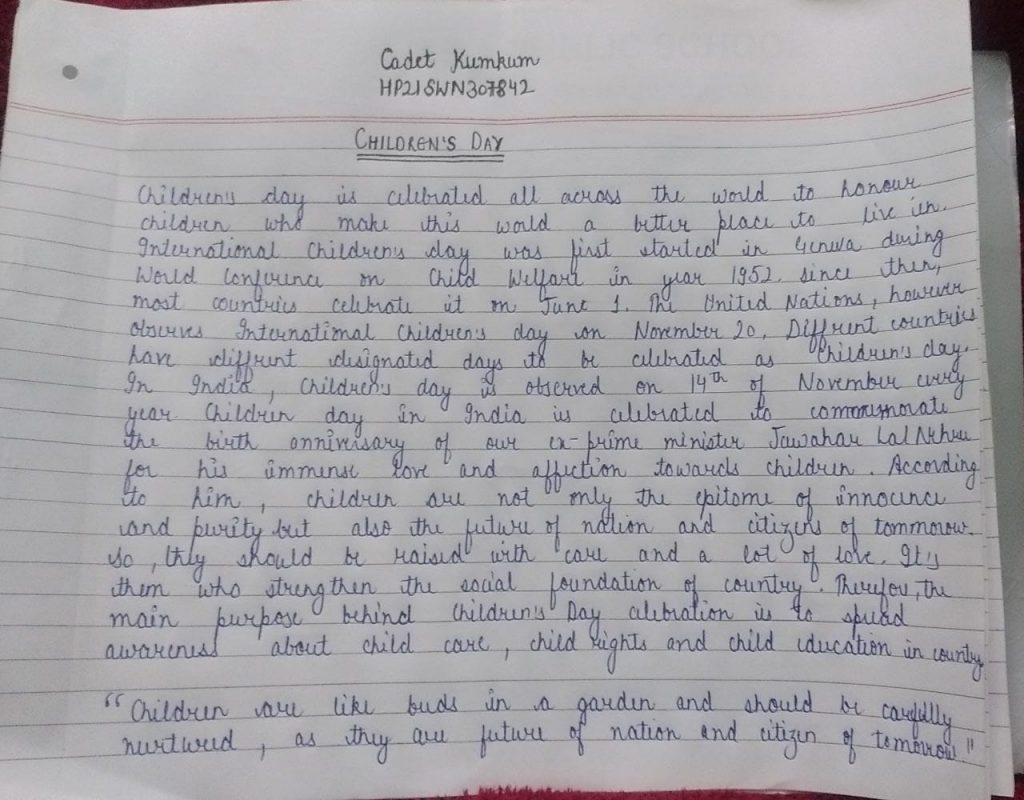 Cadet Kumkum
HP21SWN307842
CHILDREN'S DAY
Children's day is celebrated all across the world to honour
children who make this world a better place to live in.
International Children's day was first started in Geneva during
World Conference on Child Welfare in year 1952. since then,
most countries celebrate it on June 1. The United Nations, however
observes International Children's day on November 20. Diffrent countries
have diffrent designated days to be celebrated as Children's day.
In India, Children's day is observed on 14th of November every
year Children day in India is celebrated to commomorate
the birth anniversary of our ex-prime minister Jawahar Lal Nehru
for his immense love and affection towards children. According
to him, children are not only the epitome of innounce
and purity but also the future of nation and citizens of tommorow.
So, they should be raised with care and a lot of love. It's
them who strengthen the social foundation of country. Therefore, the
main purpose behind Children's Day celebration is to spread
awareness about child care, child rights and child education in country
"Children are like buds in a garden and should be carefully
nurtured, as they are future of nation and citizen of tomorrow"